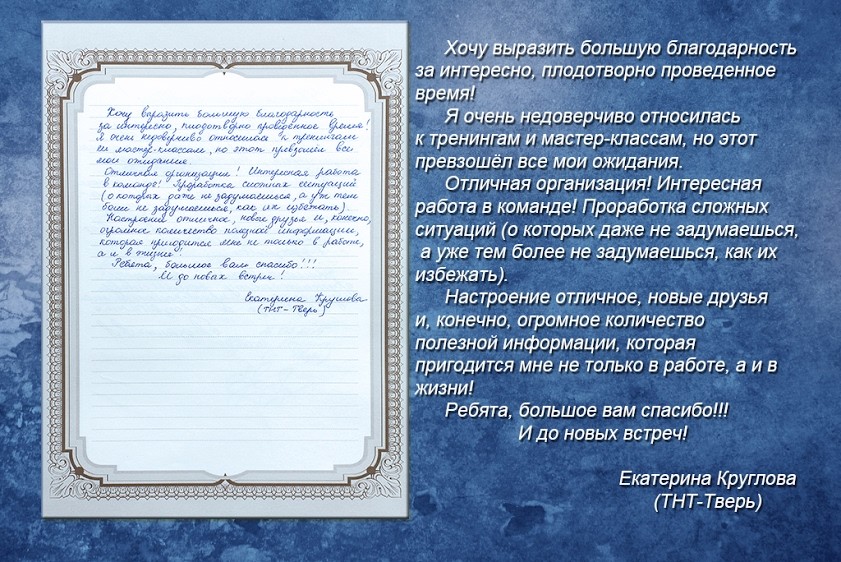 Хочу выразить большую благодарность
за интересно, плодотворно проведенное время!
Я очень недоверчиво относилась к тренингам
и мастер-классам, но этот превзошёл все
мои ожидания.
Отличная организация! Интересная работа
в команде! Проработка сложных ситуаций
(о которых даже не задумаешься, а уж тем
более не задумаешься, как их избежать).
Настроение отличное, новые друзья и, конечно,
огромное количество полезной информации,
которая пригодится мне не только в работе,
а и в жизни!
Ребята, большое вам спасибо!!!
И до новых встреч!
Екатерина Круглова
(ТНТ-Тверь)
Хочу выразить большую благодарность
за интересно, плодотворно проведенное
время!
Я очень недоверчиво относилась
к тренингам и мастер-классам, но этот
превзошёл все мои ожидания.
Отличная организация! Интересная
работа в команде! Проработка сложных
ситуаций (о которых даже не задумаешься,
а уже тем более не задумаешься, как их
избежать).
Настроение отличное, новые друзья
и, конечно, огромное количество
полезной информации, которая
пригодится мне не только в работе, а и в
жизни!
Ребята, большое вам спасибо!!!
И до новых встреч!
Екатерина Круглова
(ТНТ-Тверь)